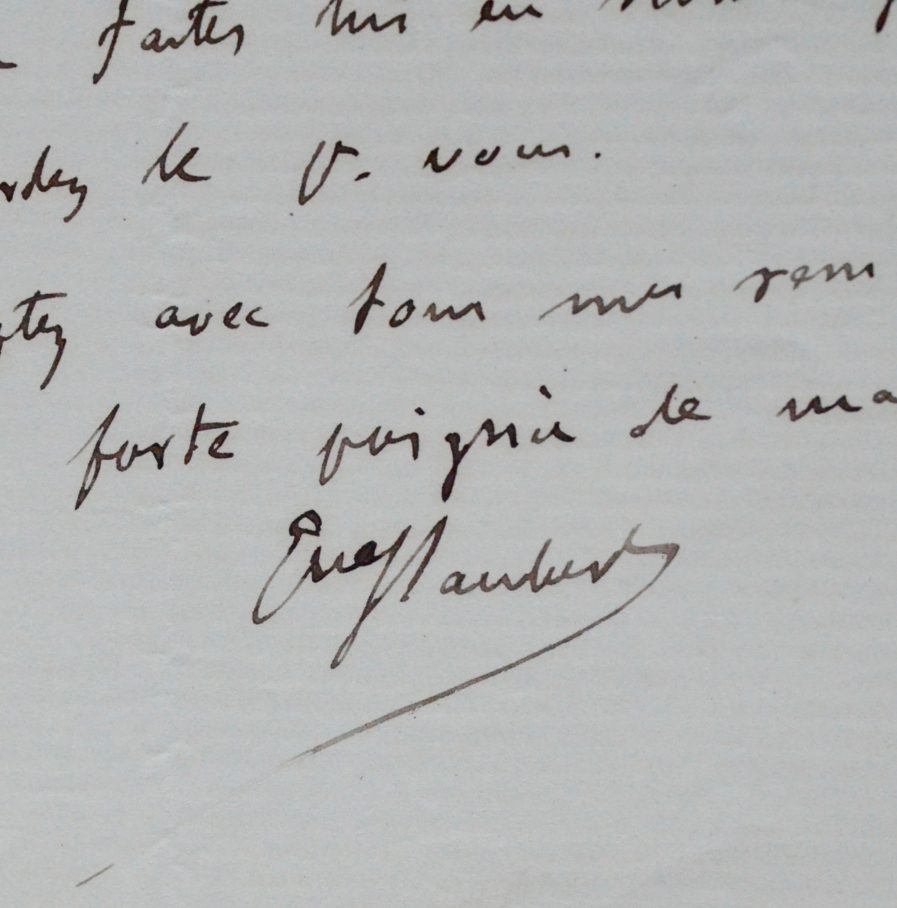 faites lui en
rdez le p. vous.
ptez avec tous mes rem
forte poignée de ma
Gve Flaubert